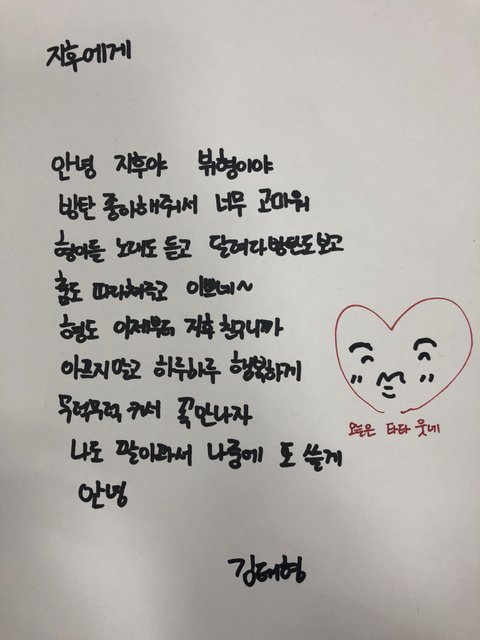 지후에게
안녕 지후야 뷔형이야
방탄 좋아해줘서 너무 고마워
형아들 노래도 듣고 달려라방탄도보고
춤도 따라춰주고 이쁘네~
형도 이제부터 지후 친구니까
아프지말고 하루하루 행복하게
무럭무럭 커서 꼭만나자
나도 말이와서 나중에 또 쓸게
안녕
오늘은 타타 웃네
김태형